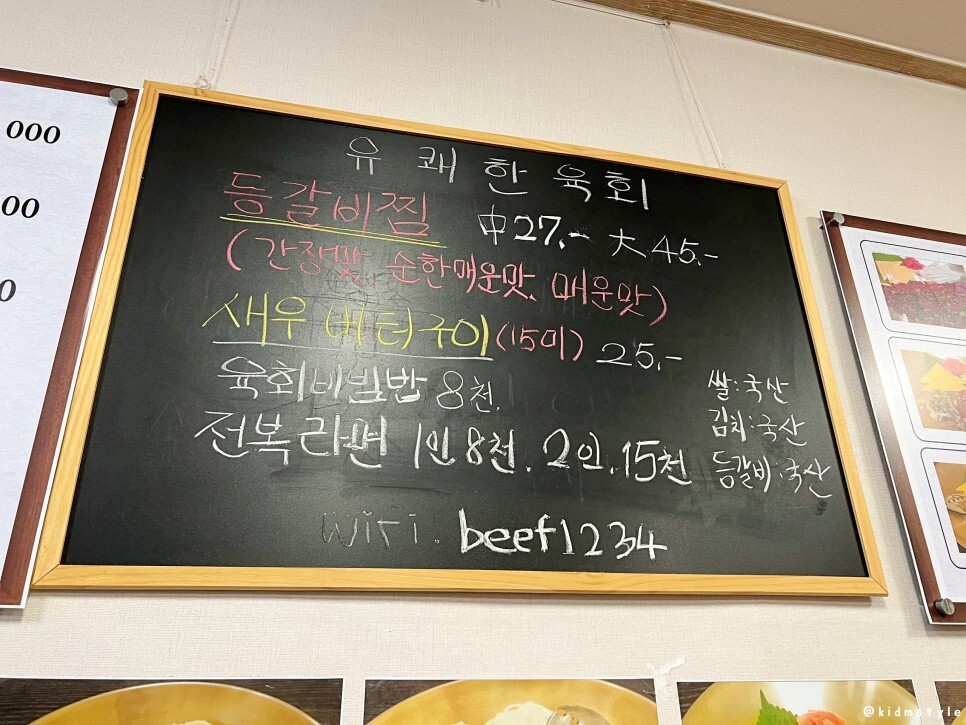 유쾌한육회
등갈비찜 中27.- 大45.-
(간장맛, 순한매운맛, 매운맛)
새우 버터구이(15미) 25.-
육회비빔밥 8천.
전복라면 1인8천. 2인.15천
쌀:국산
김치:국산
등갈비:국산
wifi. beef1234
000
00
0
@kidmstyle